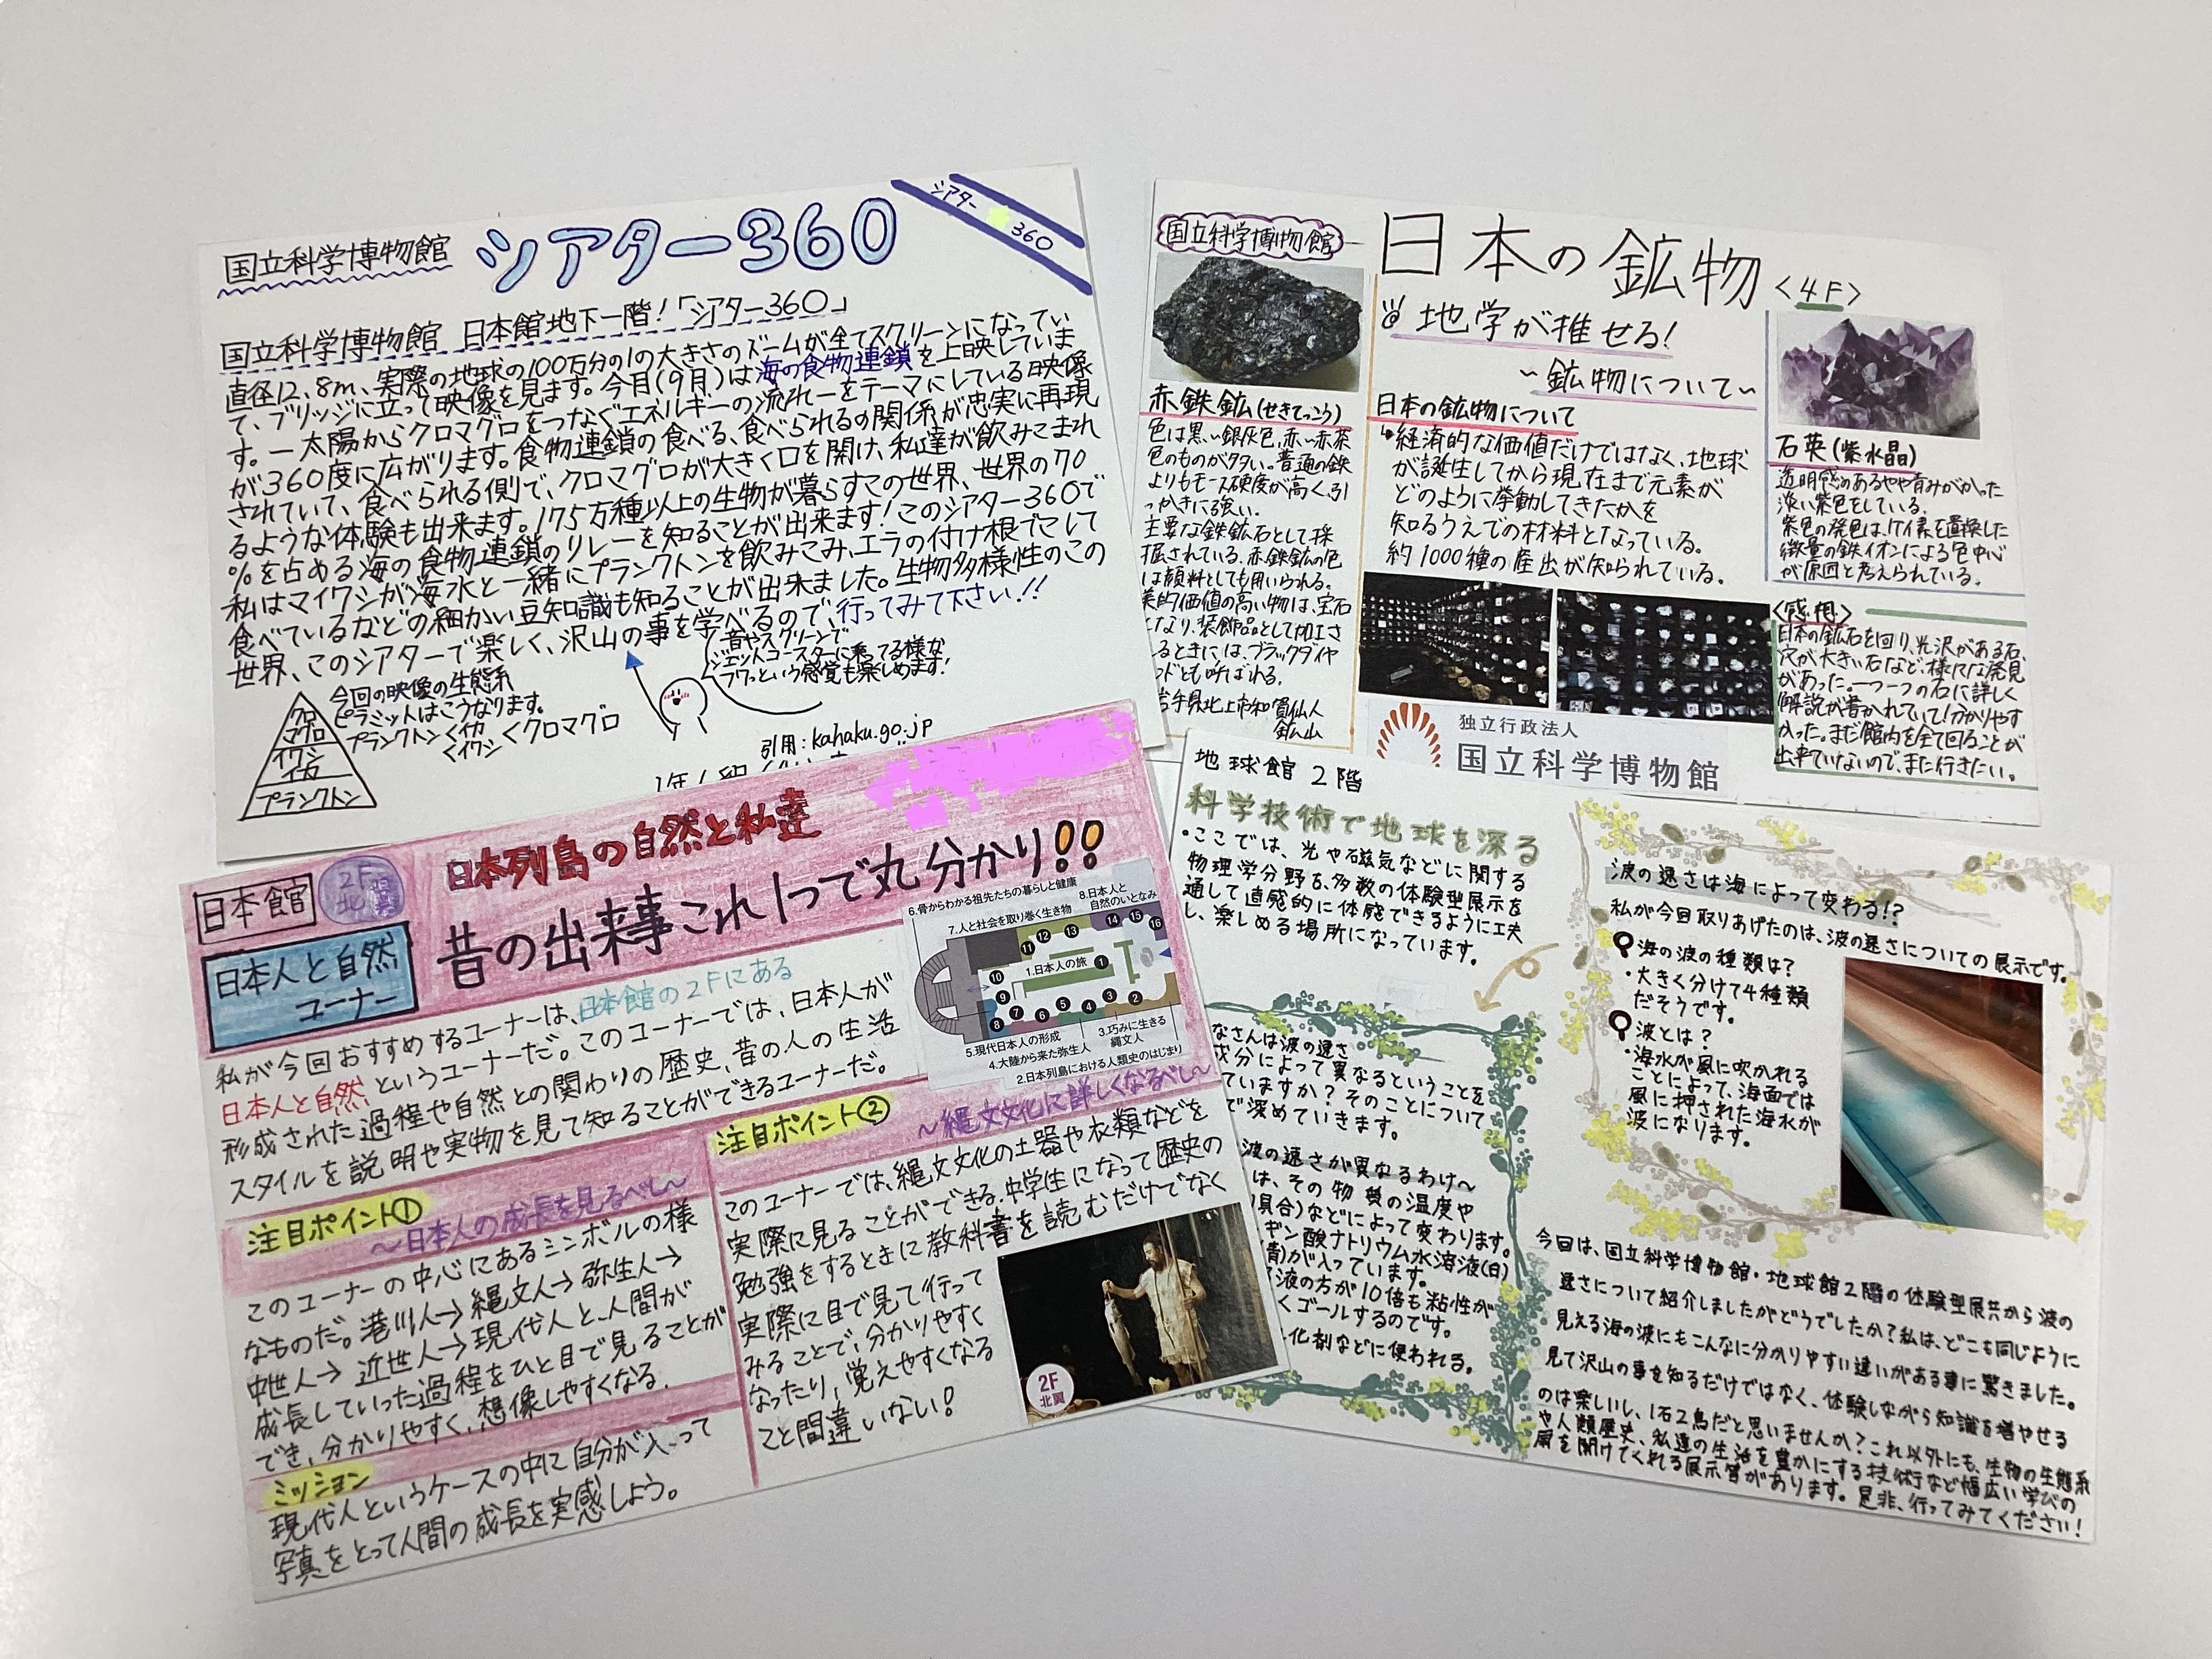 国立科学博物館
シアター360
シアター
360
国立科学博物館 日本館地下一階!「シアター360」
直径12.8m、実際の地球の100万分の1の大きさのズームが全てスクリーンになってい
て、ブリッジに立って映像を見ます。今月(9月)は海の食物連鎖を上映していま
す。ー太陽からクロマグロをつなぐエネルギーの流れーをテーマにしている映像
が360度に広がります。食物連鎖の食べる、食べられるの関係が忠実に再現
されていて、食べられる側で、クロマグロが大きく口を開け、私達が飲みこまれ
るような体験も出来ます。175万種以上の生物が暮らすこの世界、世界の70
%を占める海の食物連鎖のリレーを知ることが出来ます!このシアター360で
私はマイワシが海水と一緒にプランクトンを飲みこみ、エラの付け根でこして
食べているなどの細かい豆知識も知ることが出来ました。生物多様性のこの
世界、このシアターで楽しく、沢山の事を学べるので、行ってみて下さい!!
音やスクリーンで
ジェットコースターに乗ってる様な
フワっという感覚も楽しめます!
今回の映像の生態系
ピラミットはこうなります。
プランクトン<イカ
<イワシ<クロマグロ
クロ
マグロ
イワシ
イカ
プランクトン
引用:kahaku.go.jp
国立科学博物館
日本の鉱物<4F>
地学が推せる!
~鉱物について~
赤鉄鉱(せきてっこう)
色は黒い銀灰色、赤い赤茶
色のものが多い。普通の鉄
よりもモース硬度が高く、引
っかきに強い。
主要な鉄鉱石として採
掘されている。赤鉄鉱の色
は顔料としても用いられる。
美的価値の高い物は、宝石
となり、装飾品として加工さ
るときには、ブラックダイヤ
ンドとも呼ばれる。
岩手県北上市和賀仙人
鉱山
日本の鉱物について
↳経済的な価値だけではなく、地球
が誕生してから現在まで元素が
どのように挙動してきたかを
知るうえでの材料となっている。
約1000種の産出が知られている。
独立行政法人
国立科学博物館
石英(紫水晶)
透明感のあるやや青みがかった
淡い紫色をしている。
紫色の発色は、ケイ素を置換した
微量の鉄イオンによる色中心
が原因と考えられている。
<感想>
日本の鉱石を回り、光沢がある石、
穴が大きい石など、様々な発見
があった。一つ一つの石に詳しく
解説が書かれていて!分かりやす
かった。まだ館内を全て回ることが
出来ていないので、また行きたい。
日本館
2F
北翼
日本列島の自然と私達
昔の出来事これ1つで丸分かり!!
日本人と自然
コーナー
私が今回おすすめするコーナーは、日本館の2Fにある
日本人と自然というコーナーだ。このコーナーでは、日本人が
形成された過程や自然との関わりの歴史、昔の人の生活
スタイルを説明や実物を見て知ることができるコーナーだ。
6.骨からわかる祖先たちの暮らしと健康
8.日本人と
自然のいとなみ
7.人と社会を取り巻く生き物
1.日本人の旅
5.現代日本人の形成
3.巧みに生きる
縄文人
4.大陸から来た弥生人
2.日本列島における人類史のはじまり
注目ポイント①
~日本人の成長を見るべし~
このコーナーの中心にあるシンボルの様
なものだ。港川人→縄文人→弥生人→
中世人→近世人→現代人と、人間が
成長していった過程をひと目で見ることが
でき、分かりやすく、想像しやすくなる。
ミッション
現代人というケースの中に自分が入って
写真をとって人間の成長を実感しよう。
注目ポイント②
~縄文文化に詳しくなるべし~
このコーナーでは、縄文文化の土器や衣類などを
実際に見ることができる。中学生になって歴史の
勉強をするときに教科書を読むだけでなく
実際に目で見て行って
みることで、分かりやすく
なったり、覚えやすくなる
こと間違いない!
2F
北翼
地球館2階
科学技術で地球を深る
・ここでは、光や磁気などに関する
物理学分野を、多数の体験型展示を
通して直感的に体感できるように工夫
し、楽しめる場所になっています。
なさんは波の速さ
成分によって異なるということを
ていますか?そのことについて
で深めていきます。
波の速さが異なるわけ~
は、その物質の温度や
具合)などによって変わります。
ギン酸ナトリウム水溶液(白)
青)が入っています。
液の方が10倍も粘性が
くゴールするのです。
化剤などに使われる。
波の速さは海によって変わる!?
私が今回取りあげたのは、波の速さについての展示です。
海の波の種類は?
・大きく分けて4種類
だそうです。
波とは?
・海水が風に吹かれる
ことによって、海面では
風に押された海水が
波になります。
今回は、国立科学博物館・地球館2階の体験型展共から波の
速さについて紹介しましたがどうでしたか?私は、どこも同じように
見える海の波にもこんなに分かりやすい違いがある事に驚きました。
見て沢山の事を知るだけではなく、体験しながら知識を増やせる
のは楽しいし、1石2鳥だと思いませんか?これ以外にも、生物の生態系
や人類歴史、私達の生活を豊かにする技術など幅広い学びの
扉を開けてくれる展示等があります。是非、行ってみてください!